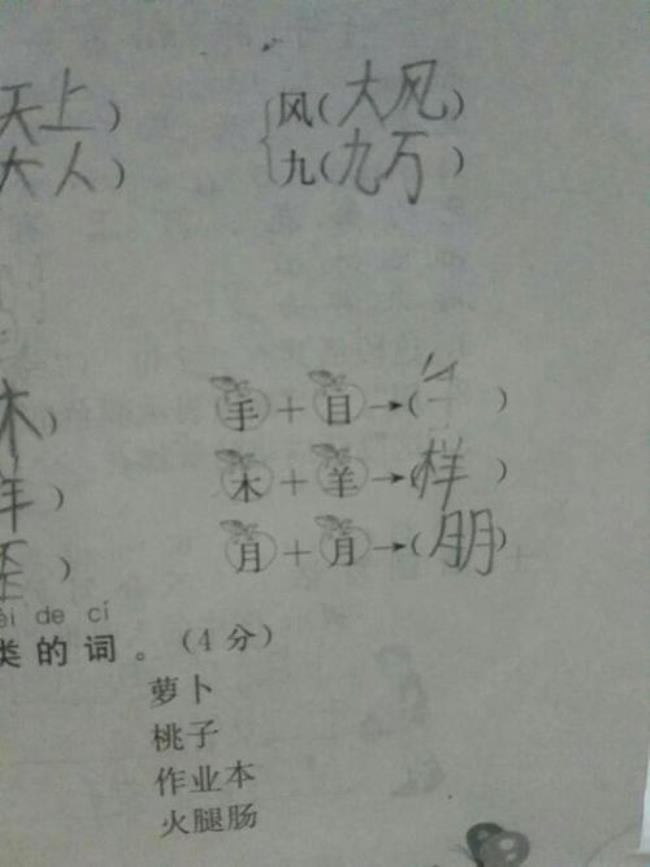 天上) 风(大风)
大人) 九(九万)
木) 手+目→( )
样) 木+羊→(样)
歪) 月+月→(朋)
èi de cí
类的词。(4分)
萝卜
桃子
作业本
火腿肠